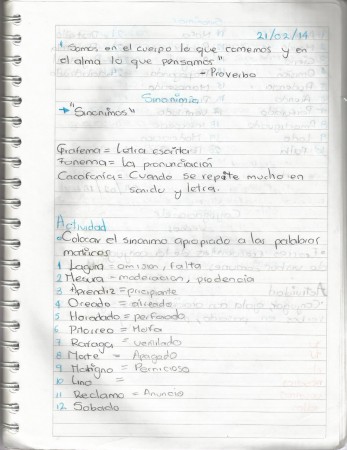 21/02/14
"Somos en el cuerpo lo que comemos y en
el alma lo que pensamos"
- Proverbo
Sinonimia
"Sinonimos"
Grafema = Letra escrita
Funema = La pronunciación
Cacofonía = Cuando se repite mucho en
sonido y letra.
Actividad
Colocar el sinonimo apropiado a las palabras
1 Laguna = omision, falta
2 Mesura = moderacion, prudencia
3 Aprendiz = principante
4 Oreado = aireado
5 Horadado = perforado
6 = Mofa
7 = ventilado
8 Mate = Apagado
9 Maligno = Pernicioso
10 Uno =
11 Reclamo = Anuncio
12 Sabado